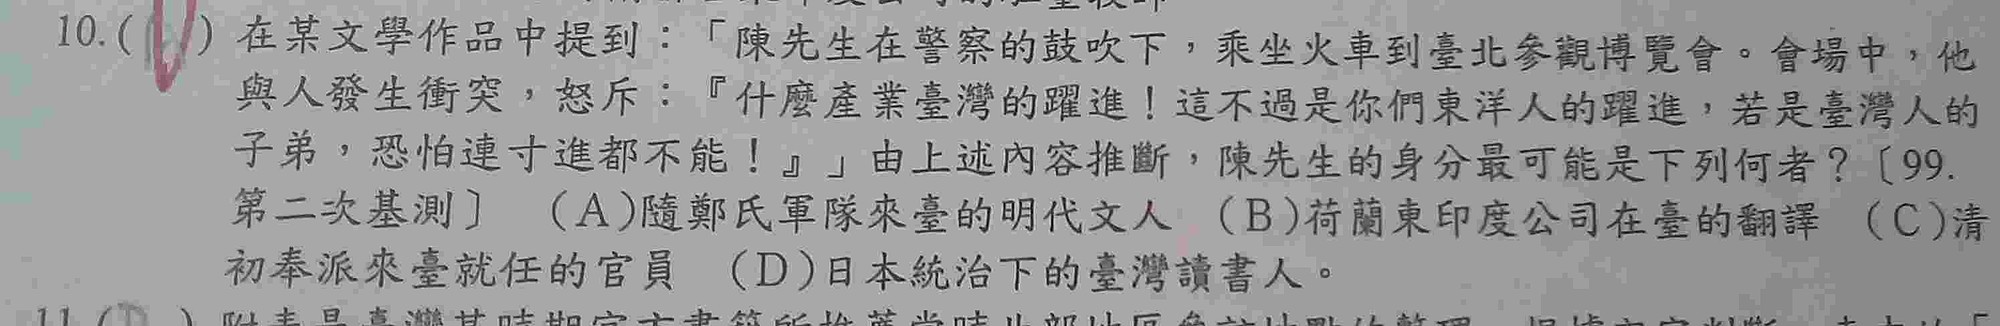 10.( ) 在某文學作品中提到：「陳先生在警察的鼓吹下，乘坐火車到臺北參觀博覽會。會場中，他
與人發生衝突，怒斥：『什麼產業臺灣的躍進！這不過是你們東洋人的躍進，若是臺灣人的
子弟，恐怕連寸進都不能！』」由上述內容推斷，陳先生的身分最可能是下列何者？〔99.
第二次基測〕 (A)隨鄭氏軍隊來臺的明代文人 (B)荷蘭東印度公司在臺的翻譯 (C)清
初奉派來臺就任的官員 (D)日本統治下的臺灣讀書人。